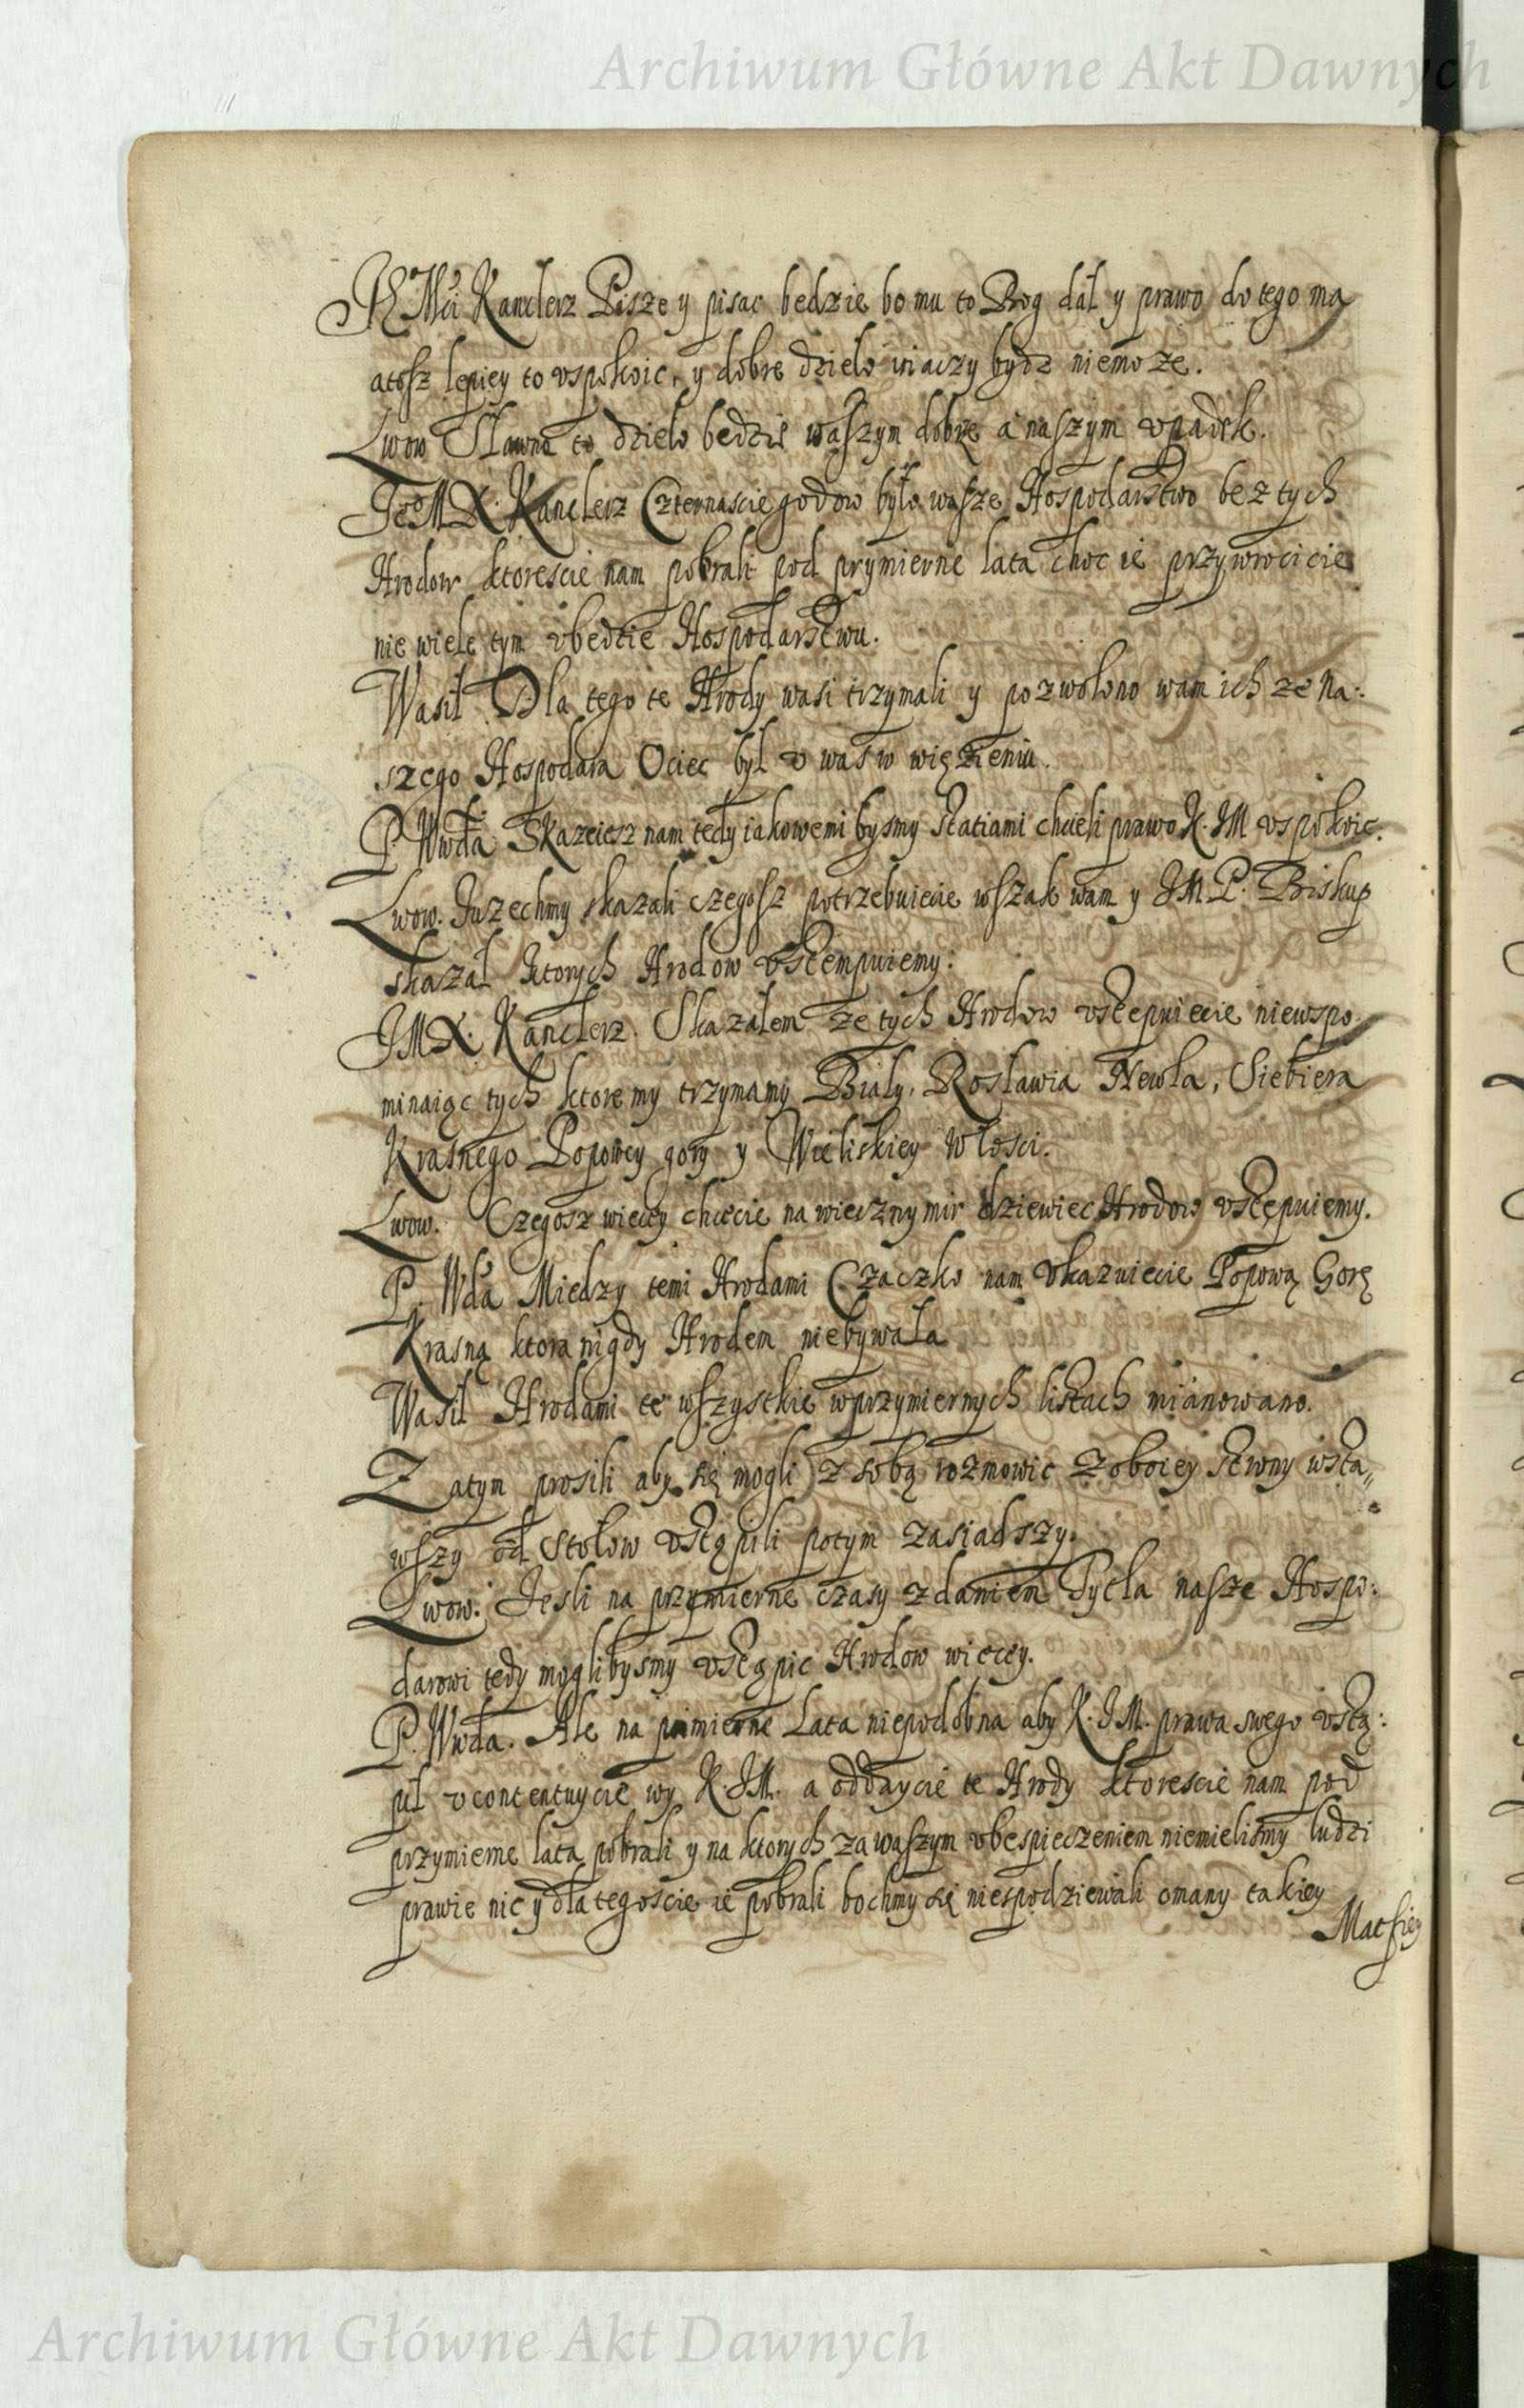 Archiwum Główne Akt Dawnych
JE Mći Kanclerz Pisze y pisac bedzie bo mu to Bog dał y prawo do tego ma
atosz lepiey to vspokoic, y dobre dzieło inaczy bydz niemoze.
Lwow Sławne to dzieło bedzie waszym dobre a naszym vpadek.
JeoMX. Kanclerz Czternascie godow było wasze Hospodarstwo bez tych
Hrodow ktorescie nam pobrali pod prymierne lata choc ie przywrocicie
nie wiele tym vbedzie Hospodarstwu.
Wasil Dla tego te Hrody wasi trzymali y pozwolono wam ich ze na:
szego Hospodara Ociec był v was w więzieniu.
P. Wwda Skazciesz nam tedy iakowemi bysmy statiami chcieli prawo K. JM vspokoic.
Lwow. Juzechmy skazali czegosz potrzebuiecie wszak wam y JM P. Biskup
skazał ktorych Hrodow vstempuiemy:
JMX. Kanclerz. Skazałem ze tych Hrodow vstepuiecie niewspo:
minaiąc tych ktore my trzymamy Biały, Rosławia Newla, Siebieza
Krasnego Popowey gory y Wieliskiey Włosci.
Lwow. Czegosz wiecey chcecie na wieczny mir dziewiec Hrodow vstępuiemy.
P. Wda Miedzy temi Hrodami Czaczko nam vkazuiecie Popową Gorę
Krasną ktora nigdy Hrodem niebywała
Wasil Hrodami te wszystkie w przymiernych listach mianowano.
Zatym prosili aby się mogli z sobą rozmowic z oboiey strony wsta„
wszy od stołow vstąpili potym zasiadszy.
Lwow. Jesli na przymierne czasy zdaniem Tytła nasze Hospo:
darowi tedy moglibysmy vstąpic Hrodow wiecey.
P. Wwda. Ale na primierne Lata niepodobna aby K. JM. prawa swego vstą:
pił vcontentuycie wy K. JM. a oddaycie te Hrody ktorescie nam pod
przymierne lata pobrali y na ktorych za waszym vbespieczeniem niemielismy ludzi
prawie nic y dla tegoscie ie pobrali bochmy się niespodziewali omany takiey
Archiwum Główne Akt Dawnych